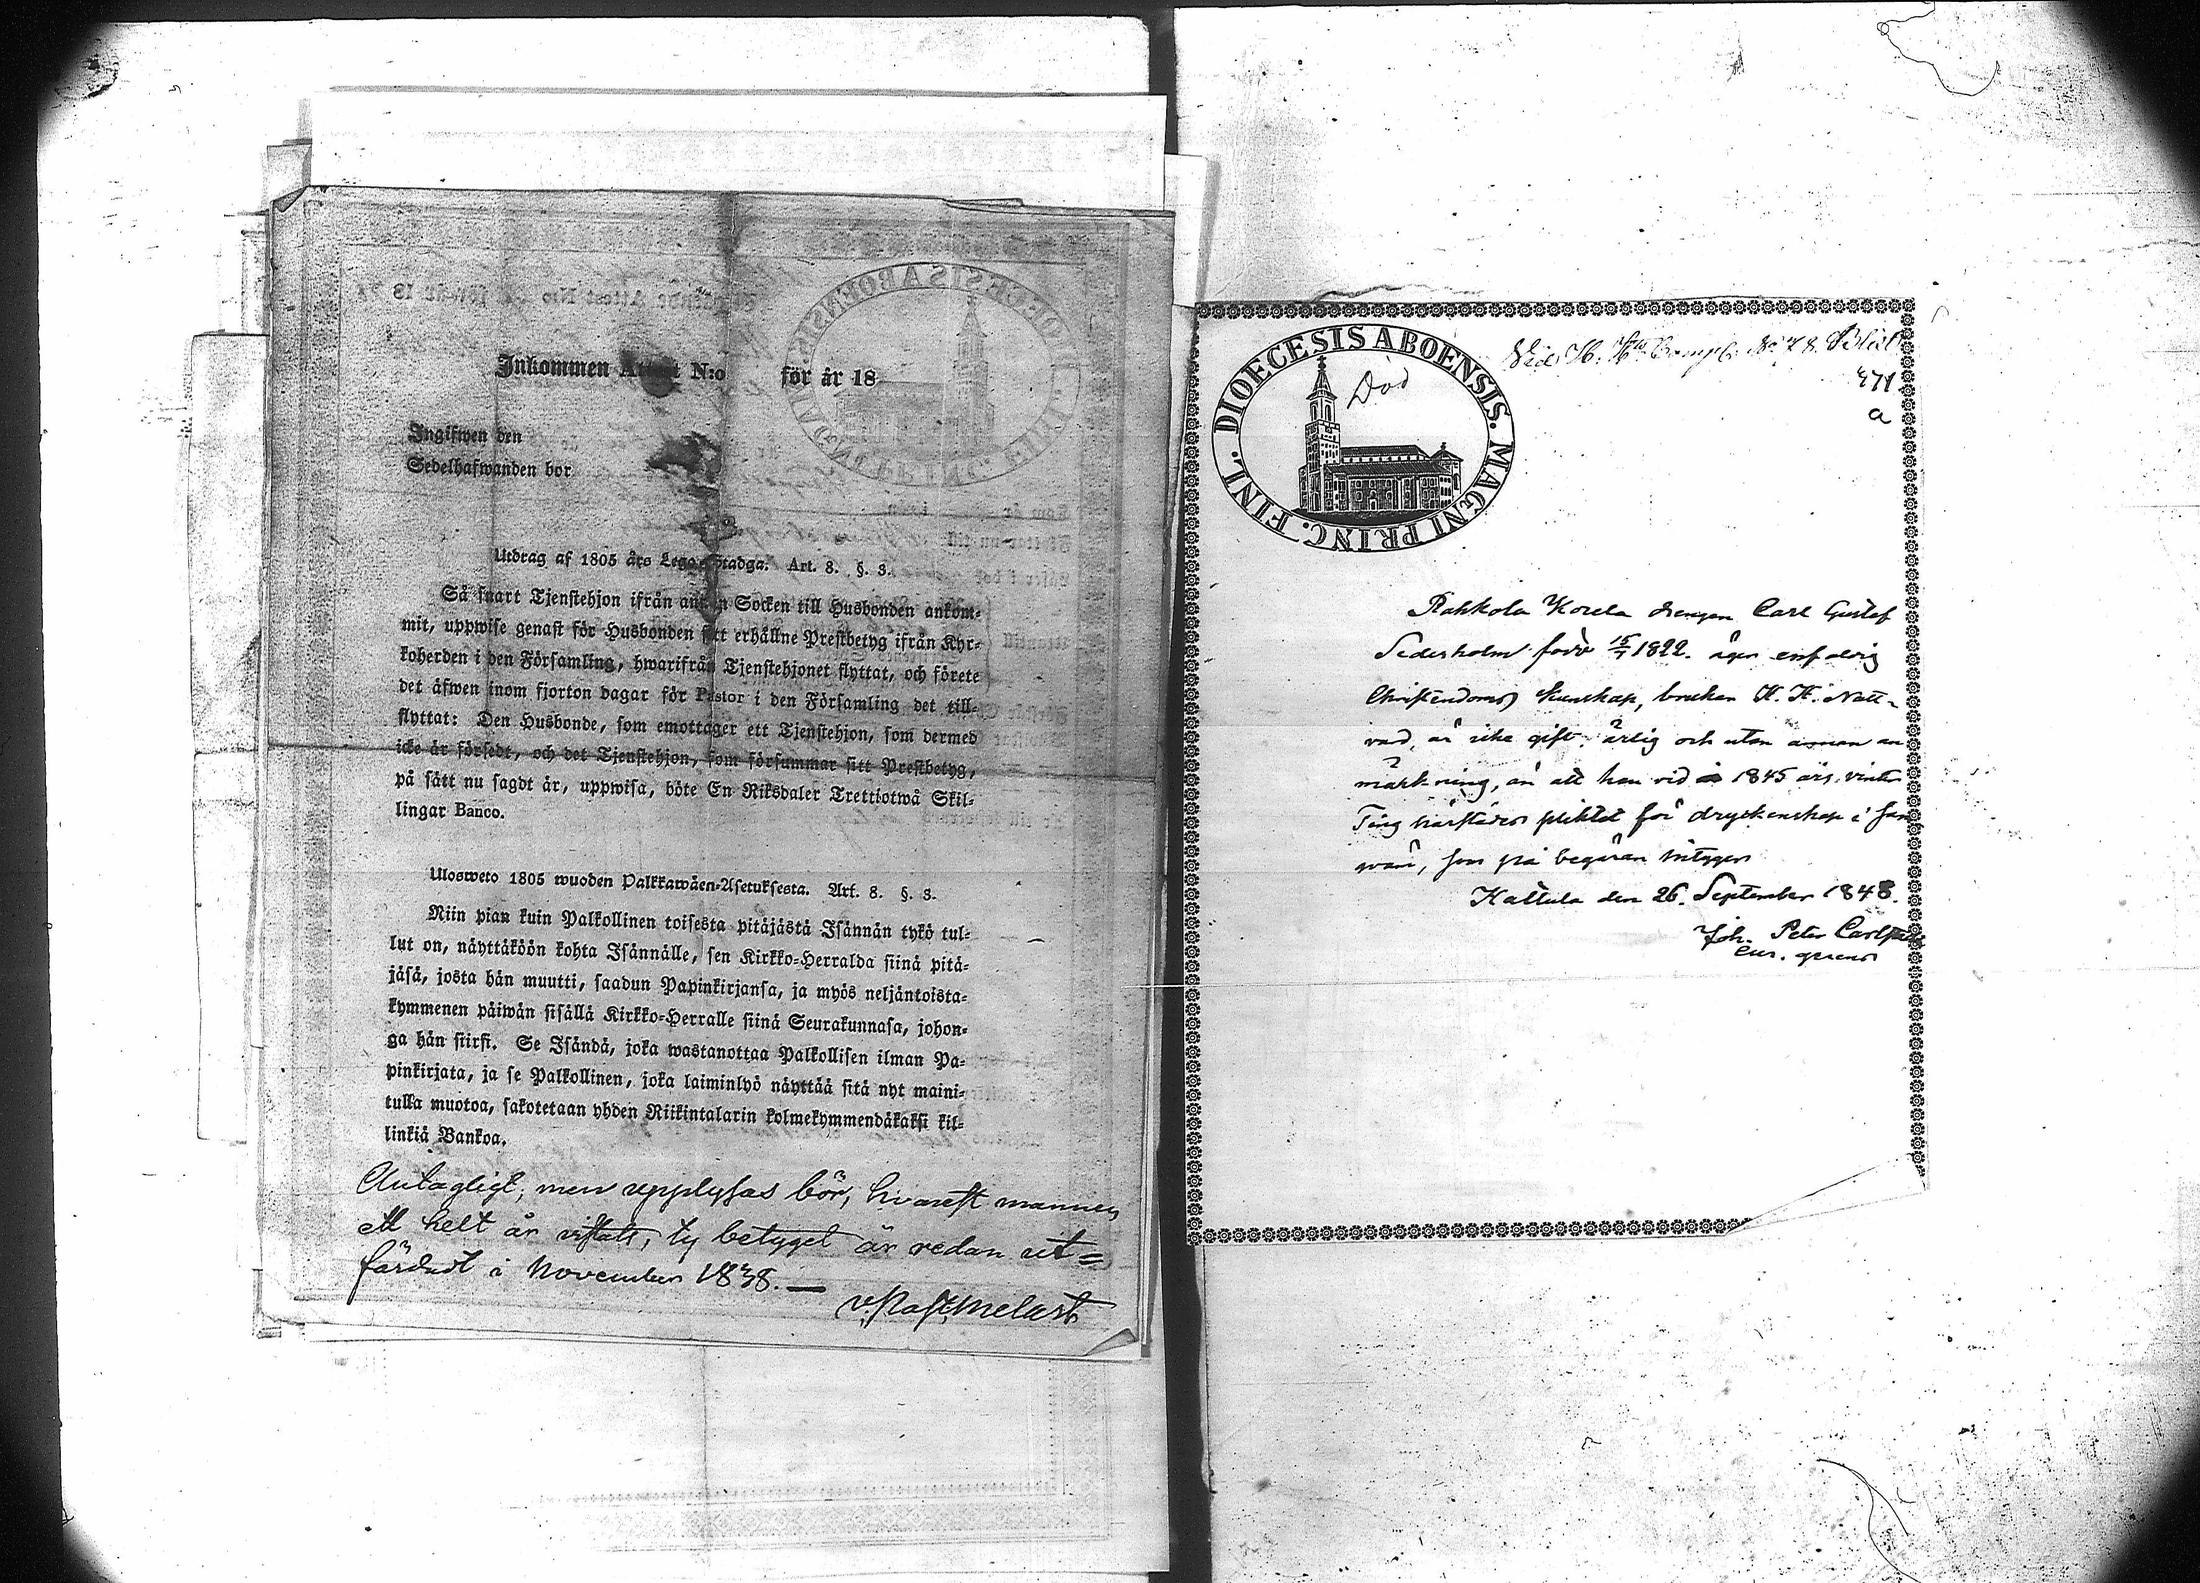 Inkommen Attest N:o för år 18
Ingifwen den
Sedelhafwanden bor
Utdrag af 1805 års Lego-Stadga. Art. 8. §. 3.
Så snart Tjenstehjon ifrån annan Socken till Husbonden ankom-
mit, uppwise genast för Husbonden sitt erhållne Prestbetyg ifrån Kyr-
koherden i den Församling, hwarifrån Tjenstehjonet flyttat, och förete
det äfwen inom fjorton dagar för Pastor i den Församling det till-
flyttat: Den Husbonde, som emottager ett Tjenstehjon, som dermed
icke är försedt, och det Tjenstehjon, som försummar sitt Prestbetyg,
på sätt nu sagdt är, uppwisa, böte En Riksdaler Trettiotwå Skil-
lingar Banco.
Ulosweto 1805 wuoden Palkkawäen-Asetuksesta. Art. 8. §. 3.
Niin pian kuin Palkollinen toisesta pitäjästä Isännän tykö tul-
lut on, näyttäköön kohta Isännälle, sen Kirkko-Herralda siinä pitä-
jäsä, josta hän muutti, saadun Papinkirjansa, ja myös neljäntoista-
kymmenen päiwän sisällä Kirkko-Herralle siinä Seurakunnasa, johon-
ga hän siirsi. Se Isändä, joka wastanottaa Palkollisen ilman Pa-
pinkirjata, ja se Palkollinen, joka laiminlyö näyttää sitä nyt maini-
tulla muotoa, sakotetaan yhden Riikintalarin kolmekymmendäkaksi kil-
linkiä Bankoa.
Antagligt, men upplysas bör, hvarest mannen
ett helt år vistats, ty betyget är redan ut-
färdadt i November 1838. —
v. Past. Melart
DIOECESIS ABOENSIS. MAGNI PRINC. FINL.
Död
471
a
Rahkola Korela drengen Carl Gustaf
Sederholm född 15/7 1822. äger enfaldig
Christendoms kunskap, brukar H. H. Natt-
vard, är icke gift, ärlig och utan annan an
märkning, än att han vid 1845 års vinter
Ting härstädes pliktat för dryckenskap i
som på begäran intygas
Hattula den 26. September 1848.
Joh. Peter
cur. gerens